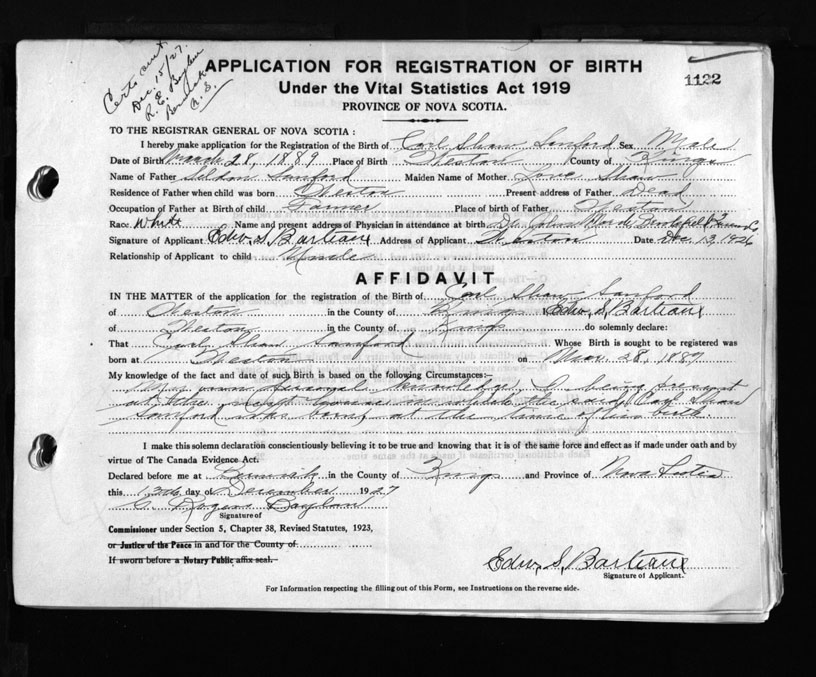 Dec. 15/27.
APPLICATION FOR REGISTRATION OF BIRTH
1122
Under the Vital Statistics Act 1919
PROVINCE OF NOVA SCOTIA.
TO THE REGISTRAR GENERAL OF NOVA SCOTIA:
I hereby make application for the Registration of the Birth of Carl Shaw Sanford Sex Male
Date of Birth March 28, 1889 Place of Birth Weston County of Kings
Name of Father Seldon Sanford Maiden Name of Mother Shaw
Residence of Father when child was born Weston Present address of Father Dead
Occupation of Father at Birth of child Farmer Place of birth of Father Weston
Race White Name and present address of Physician in attendance at birth Dr. John
Signature of Applicant Edw. S. Address of Applicant Weston Date Dec. 13, 1926
Relationship of Applicant to child Uncle
AFFIDAVIT
IN THE MATTER of the application for the registration of the Birth of Carl Shaw Sanford
of Weston in the County of Kings I Edw. S.
of Weston in the County of Kings do solemnly declare:
That Carl Shaw Sanford Whose Birth is sought to be registered was
born at Weston on Mar. 28, 1889
My knowledge of the fact and date of such Birth is based on the following Circumstances:—
My own personal knowledge, I being present
at the house in which the said Carl Shaw
Sanford was born, at the time of his birth.
I make this solemn declaration conscientiously believing it to be true and knowing that it is of the same force and effect as if made under oath and by
virtue of The Canada Evidence Act.
Declared before me at Berwick in the County of Kings and Province of Nova Scotia
this 13th day of December 1927
G. Rogers
Signature of
Commissioner under Section 5, Chapter 38, Revised Statutes, 1923,
or Justice of the Peace in and for the County of
If sworn before a Notary Public affix seal.
Edw. S.
Signature of Applicant.
For Information respecting the filling out of this Form, see Instructions on the reverse side.